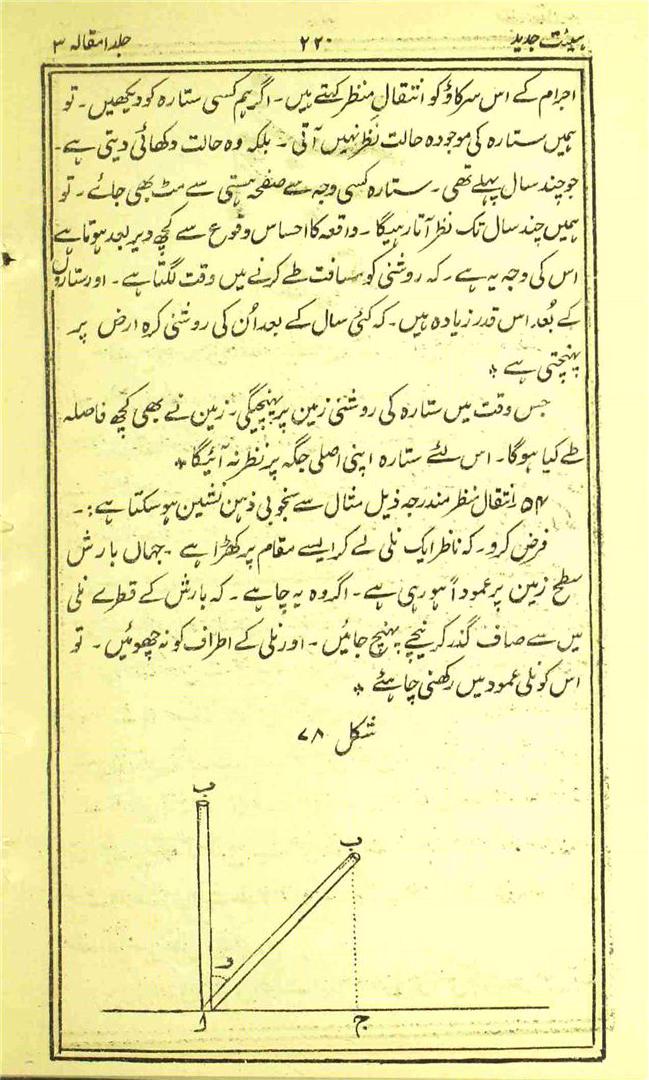 ہیئت جدید ۲۲۰ جلد۱ مقالہ ۳
اجرام کے اس سرکاؤ کو انتقالِ منظر کہتے ہیں۔ اگر ہم کسی ستارہ کو دیکھیں۔ تو
ہمیں ستارہ کی موجودہ حالت نظر نہیں آتی۔ بلکہ وہ حالت دکھائی دیتی ہے۔
جو چند سال پہلے تھی۔ ستارہ کسی وجہ سے صفحہ ہستی سے مٹ بھی جائے۔ تو
ہمیں چند سال تک نظر آتا رہیگا۔ واقعہ کا احساس وقوع سے کچھ دیر بعد ہوتا ہے
اس کی وجہ یہ ہے۔ کہ روشنی کو مسافت طے کرنے میں وقت لگتا ہے۔ اور ستاروں
کے بُعد اس قدر زیادہ ہیں۔ کہ کئی سال کے بعد اُن کی روشنی کرہ ارض پر
پہنچتی ہے *
جس وقت میں ستارہ کی روشنی زمین پر پہنچیگی۔ زمین نے بھی کچھ فاصلہ
طے کیا ہوگا۔ اس لئے ستارہ اپنی اصلی جگہ پر نظر نہ آئیگا *
۵۴ انتقال منظر مندرجہ ذیل مثال سے بخوبی ذہن نشین ہو سکتا ہے:۔
فرض کرو۔ کہ ناظر ایک نلی لے کر ایسے مقام پر کھڑا ہے۔ جہاں بارش
سطح زمین پر عموداً ہو رہی ہے۔ اگر وہ یہ چاہے۔ کہ بارش کے قطرے نلی
میں سے صاف گذر کر نیچے پہنچ جائیں۔ اور نلی کے اطراف کو نہ چھوئیں۔ تو
اس کو نلی عمود میں رکھنی چاہئے *
شکل ۷۸
ب
ب
و
ا
ج